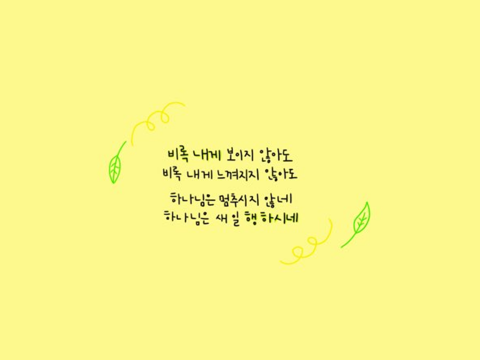 비록 내게 보이지 않아도
비록 내게 느껴지지 않아도
하나님은 멈추시지 않네
하나님은 새 일 행하시네